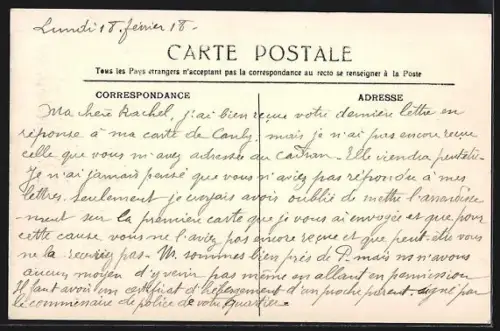 Lundi 18. février 18.-
CARTE POSTALE
Tous les Pays étrangers n'acceptent pas la correspondance au recto se renseigner à la Poste
CORRESPONDANCE
ADRESSE
Ma chère Rachel, j'ai bien reçue votre dernière lettre en
réponse à ma carte de mais je n'ai pas encore reçue
celle que vous m'avez adressée au Elle viendra peut-être.
Je n'ai jamais pensé que vous n'aviez pas répondu à mes
lettres. Seulement je croyais avoir oublié de mettre l'
sur la première carte que je vous ai envoyée et que pour
cette cause vous ne l'aviez pas encore reçue et que peut-être vous
ne la receviez pas - N. sommes bien près de P. mais ns n'avons
aucun moyen d'y venir pas même en allant en permission
Il faut avoir un certificat d'hébergement d'un proche parent signé par
le commissaire de police de votre quartier.